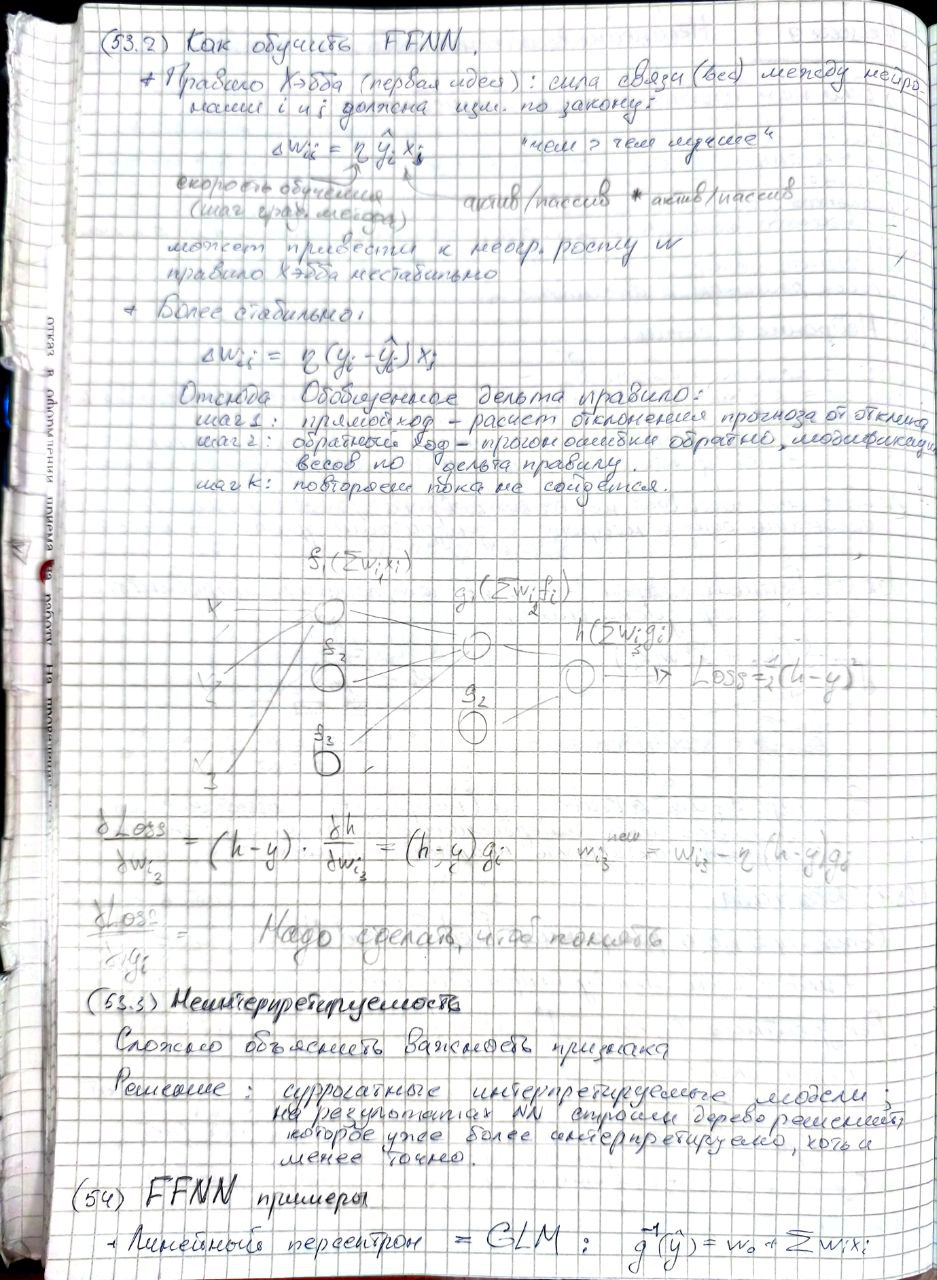 (53.2) Как обучить FFNN.
+ Правило Хэбба (первая идея): сила связи (вес) между нейро-
нами i и j должна изм. по закону:
Δw_ij = η ŷ_i x_j "чем > тем лучше"
скорость обучения актив/пассив * актив/пассив
(шаг град. метода)
может привести к неогр. росту w
правило Хэбба нестабильно
+ Более стабильно:
Δw_ij = η (y_i - ŷ_i) x_j
Отсюда Обобщенное дельта правило:
шаг 1: прямой ход - расчет отклонения прогноза от отклика
шаг 2: обратный ход - прогон ошибки обратно, модификация
весов по дельта правилу.
шаг k: повторяем пока не сойдется.
f_1(Σw_i1 x_i)
g_1(Σw_i2 f_i)
h(Σw_i3 g_i)
f_2
Loss = 1/2 (h-y)^2
g_2
f_3
∂Loss/∂w_i3 = (h-y) · ∂h/∂w_i3 = (h-y) g_i w_i3^new = w_i3 - η (h-y) g_i
∂Loss/∂g_i = Надо сделать, чтоб понять
(53.3) Неинтерпретируемость
Сложно объяснить важность признака
Решение: суррогатные интерпретируемые модели;
на результатах NN строим дерево решений,
которое уже более интерпретируемо, хоть и
менее точно.
(54) FFNN примеры
+ Линейный персептрон = GLM: g^-1(ŷ) = w_0 + Σw_i x_i